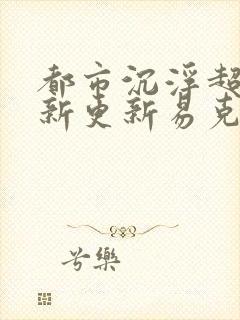 都市沉浮超
新更新易克
兮樂